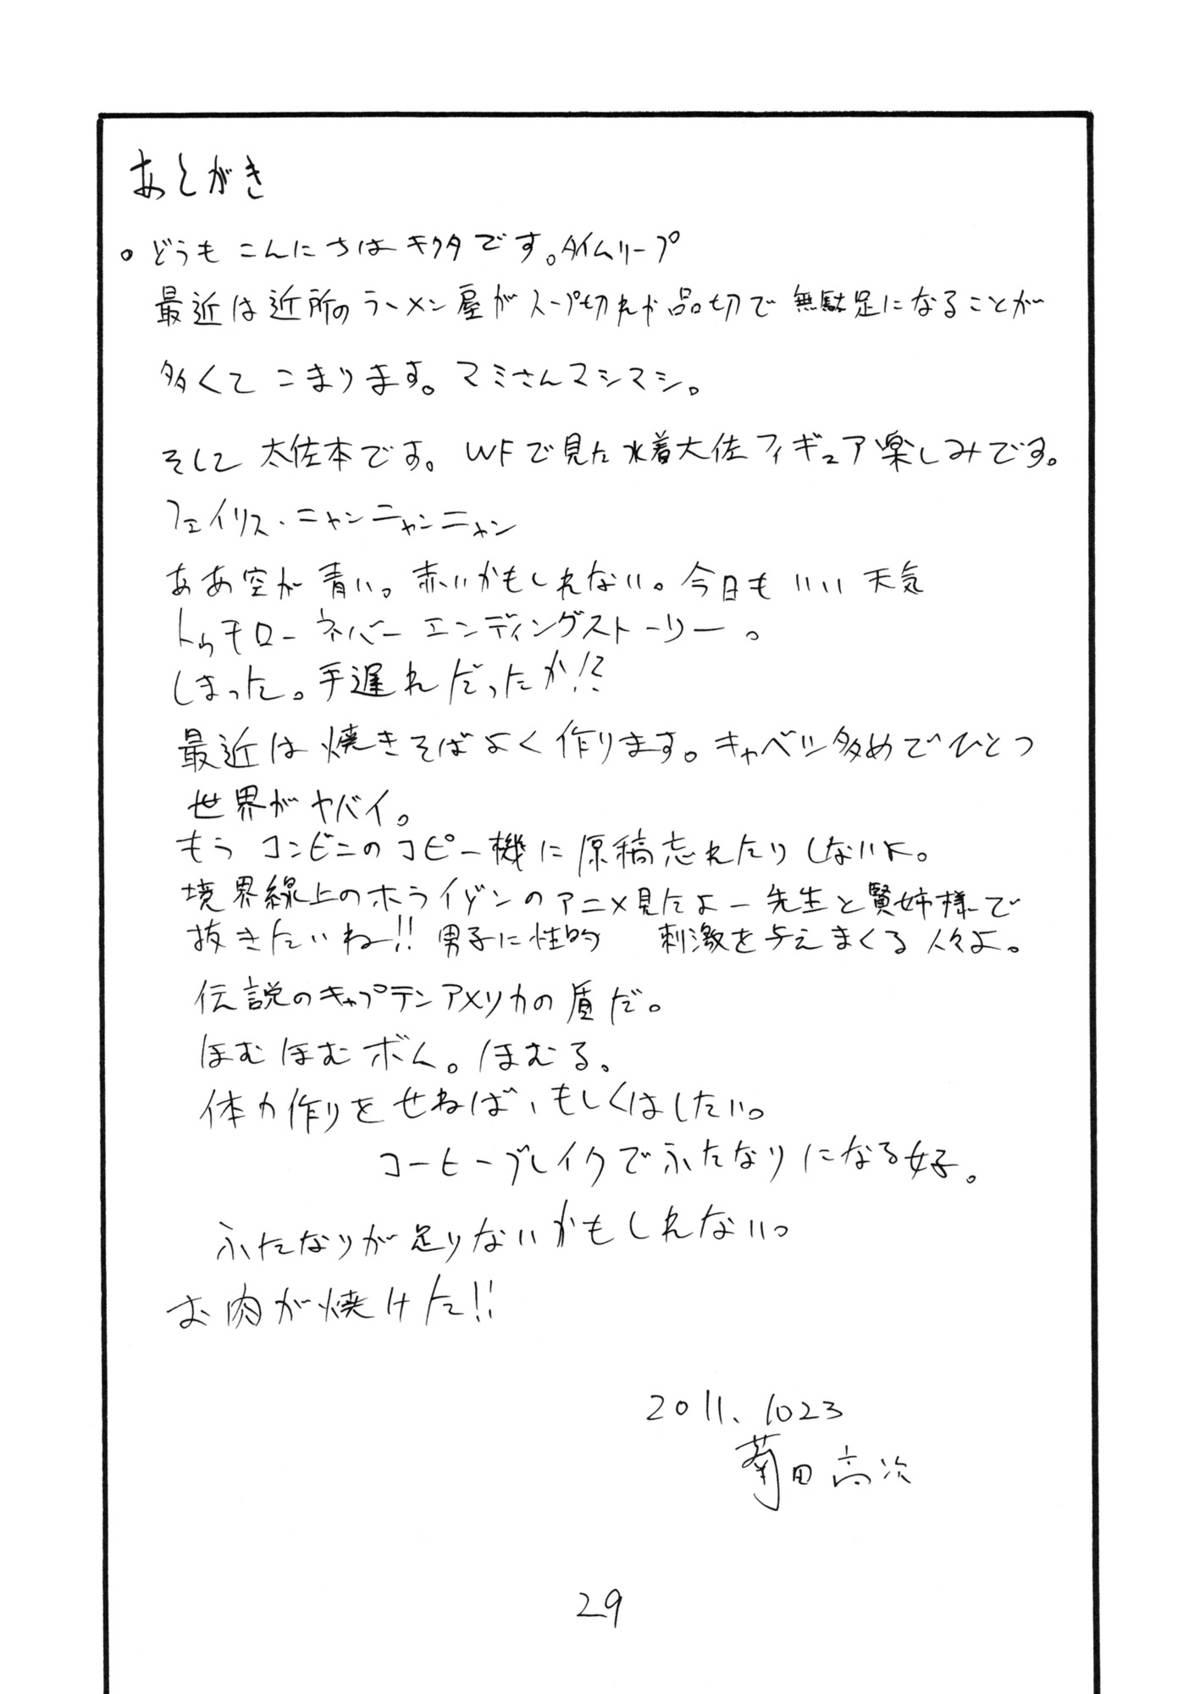 あとがき
。どうも こんにちは キクタです。タイムリープ
最近は近所のラーメン屋がスープ切れか品切で無駄足になることが
多くてこまります。マミさんマシマシ。
そして 大佐本です。WFで見た水着大佐フィギュア楽しみです。
フェイリス・ニャンニャンニャン
ああ空が青い。赤いかもしれない。今日もいい天気
トゥモローネバーエンディングストーリー。
しまった。手遅れだったか!?
最近は焼きそばよく作ります。キャベツ多めでひとつ
世界がヤバイ。
もうコンビニのコピー機に原稿忘れたりしないよ。
境界線上のホライゾンのアニメ見たよー先生と賢姉様で
抜きたいね!!男子に性的 刺激を与えまくる人々よ。
伝説のキャプテンアメリカの盾だ。
ほむほむボム。ほむる。
体力作りをせねば、もしくはしたい。
コーヒーブレイクでふたなりになる女子。
ふたなりが足りないかもしれない。
お肉が焼けた!!
2011、1023
菊田高次
29